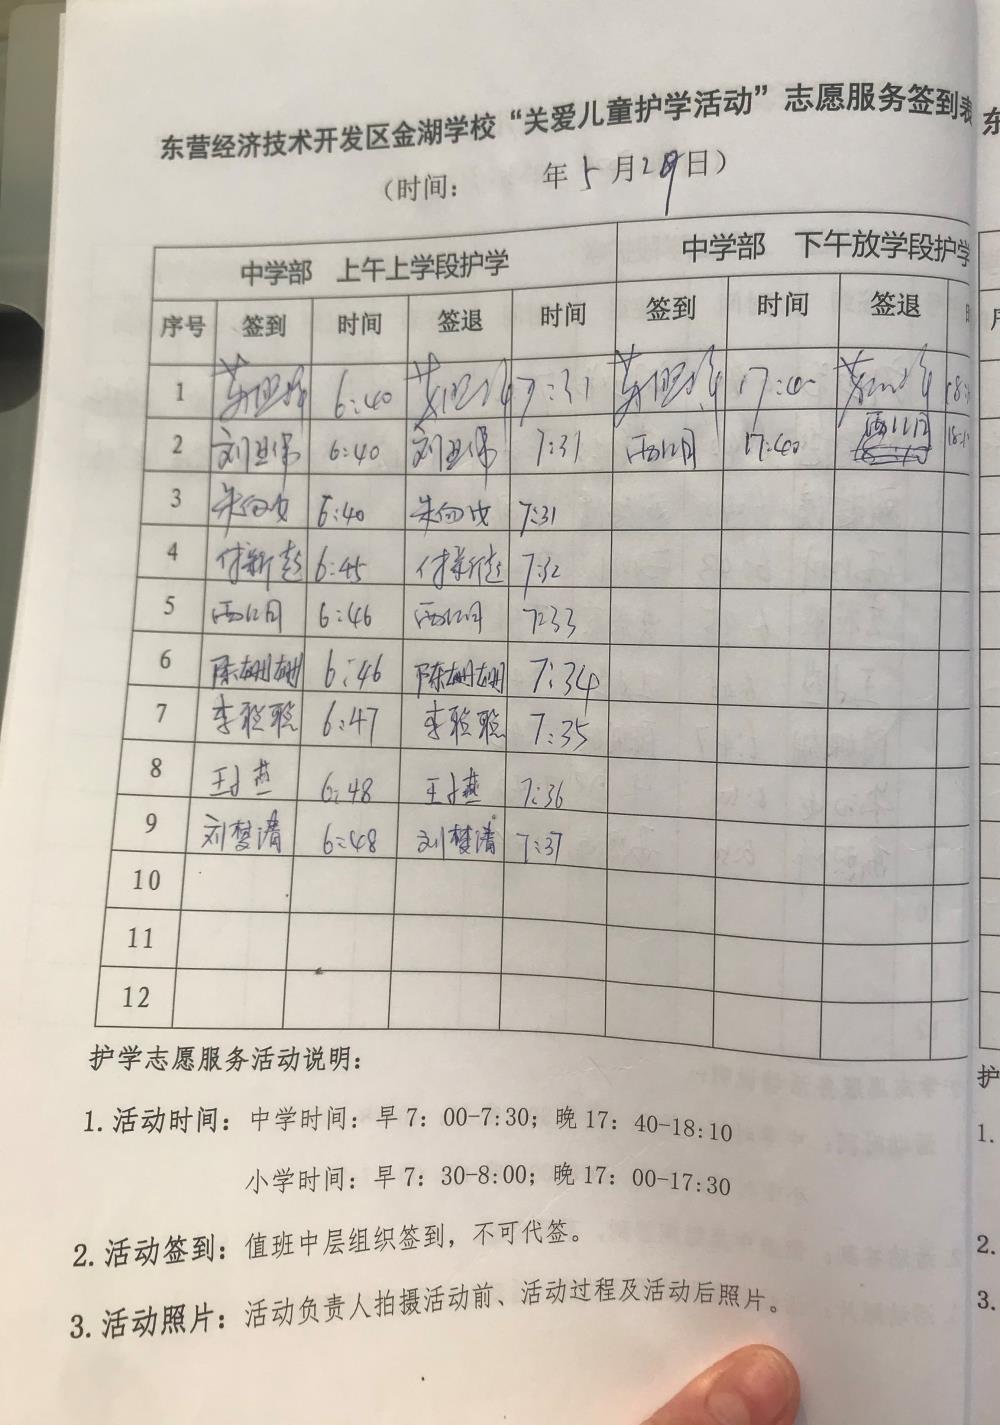 东营经济技术开发区金湖学校“关爱儿童护学活动”志愿服务签到表
（时间： 年5月29日）
中学部 上午上学段护学 中学部 下午放学段护学
序号 签到 时间 签退 时间 签到 时间 签退
1 6:40 7:31 17:40
2 6:40 7:31 17:40
3 6:40 7:31
4 付新超 6:45 付新超 7:32
5 6:46 7:33
6 陈姗姗 6:46 陈姗姗 7:34
7 李聪聪 6:47 李聪聪 7:35
8 6:48 7:36
9 刘梦清 6:48 刘梦清 7:37
10
11
12
护学志愿服务活动说明：
1.活动时间：中学时间：早7：00-7:30；晚17：40-18:10
小学时间：早7：30-8:00；晚17：00-17:30
2.活动签到：值班中层组织签到，不可代签。
3.活动照片：活动负责人拍摄活动前、活动过程及活动后照片。
东
护
1.
2.
3.